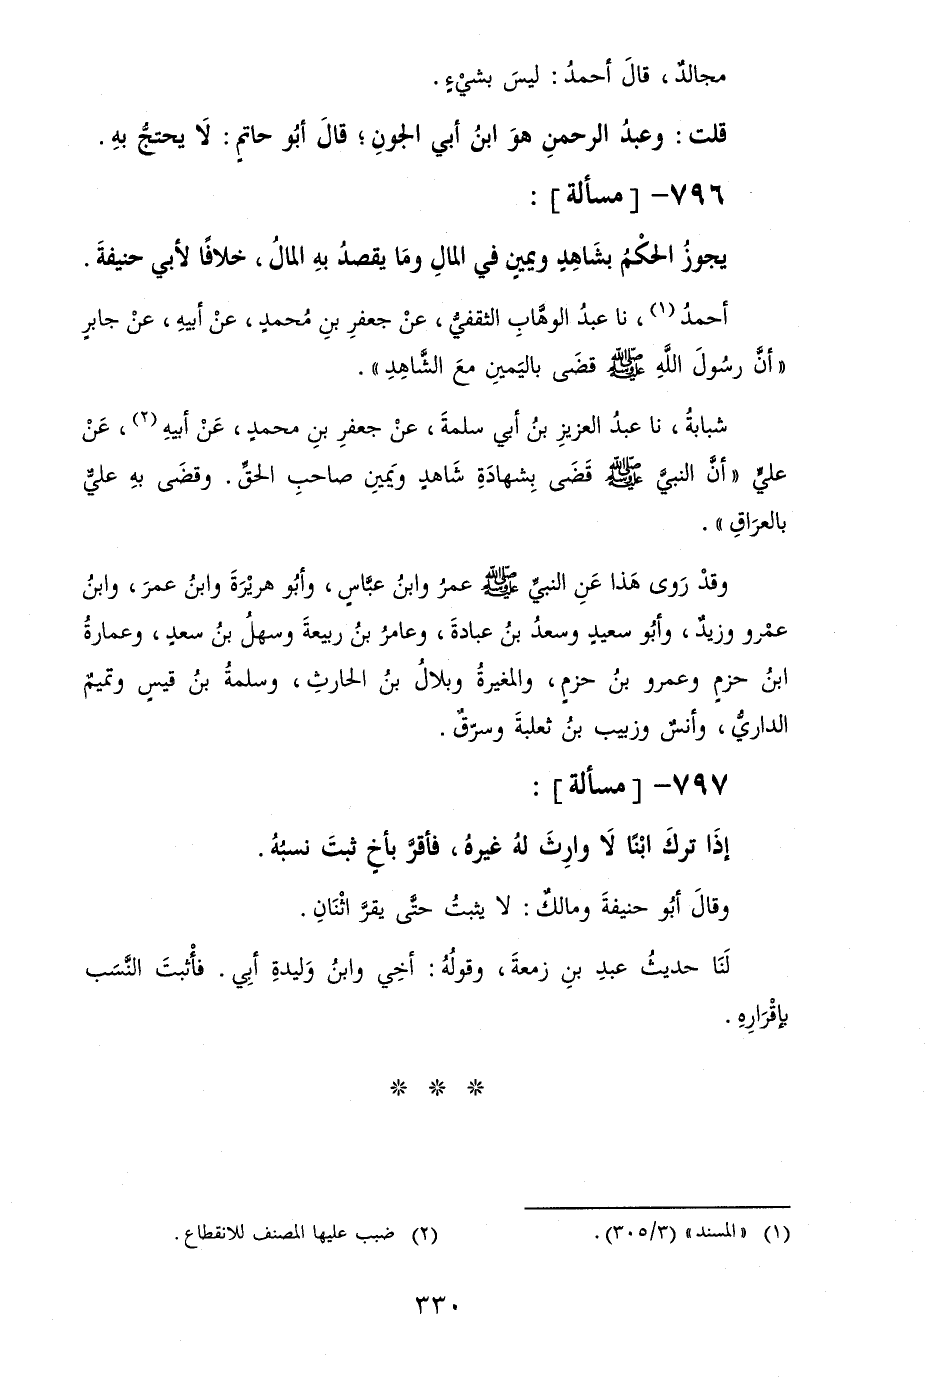 مجالدٌ ، قالَ أحمدُ : ليسَ بشيْءٍ .
قلت : وعبدُ الرحمنِ هوَ ابنُ أبي الجونِ ؛ قالَ أبُو حاتمٍ : لَا يحتجُّ بهِ .
٧٩٦- [ مسألة ] :
يجوزُ الحكْمُ بشَاهِدٍ ويمينٍ في المالِ ومَا يقصدُ بهِ المالُ ، خلافًا لأبي حنيفةَ .
أحمدُ (١) ، نا عبدُ الوهَّابِ الثقفيُّ ، عنْ جعفرِ بنِ مُحمدٍ ، عنْ أبيهِ ، عنْ جابرٍ
« أنَّ رسُولَ اللَّهِ ﷺ قضَى باليَمينِ معَ الشَّاهِدِ » .
شبابةُ ، نا عبدُ العزيزِ بنُ أبي سلمةَ ، عنْ جعفرِ بنِ محمدٍ ، عَنْ أبيهِ (٢) ، عَنْ
عليٍّ « أنَّ النبيَّ ﷺ قَضَى بِشهادَةِ شَاهدٍ ويَمينِ صاحبِ الحقِّ . وقضَى بهِ عليٌّ
بالعرَاقِ » .
وقدْ رَوى هَذا عَنِ النبيِّ ﷺ عمرُ وابنُ عبَّاسٍ ، وأبُو هريْرَةَ وابنُ عمرَ ، وابنُ
عمْرو وزيدٌ ، وأبُو سعيدٍ وسعدُ بنُ عبادةَ ، وعامرُ بنُ ربيعةَ وسهلُ بنُ سعدٍ ، وعمارةُ
ابنُ حزمٍ وعمرو بنُ حزمٍ ، والمغيرةُ وبلالُ بنُ الحارثِ ، وسلمةُ بنُ قيسٍ وتميمٌ
الداريُّ ، وأنسٌ وزبيب بنُ ثعلبةَ وسرّقٌ .
٧٩٧- [ مسألة ] :
إذَا تركَ ابْنًا لَا وارِثَ لهُ غيرهُ ، فأقرَّ بأخٍ ثبتَ نسبُهُ .
وقالَ أبُو حنيفةَ ومالكٌ : لا يثبتُ حتَّى يقرَّ اثْنَانِ .
لَنَا حديثُ عبدِ بنِ زمعةَ ، وقولُهُ : أخِي وابنُ وَليدةِ أبِي . فأُثبتَ النَّسَب
بإقْرَارِهِ .
* * *
(١) « المسند » (٣/ ٣٠٥) .
(٢) ضبب عليها المصنف للانقطاع .
٣٣٠